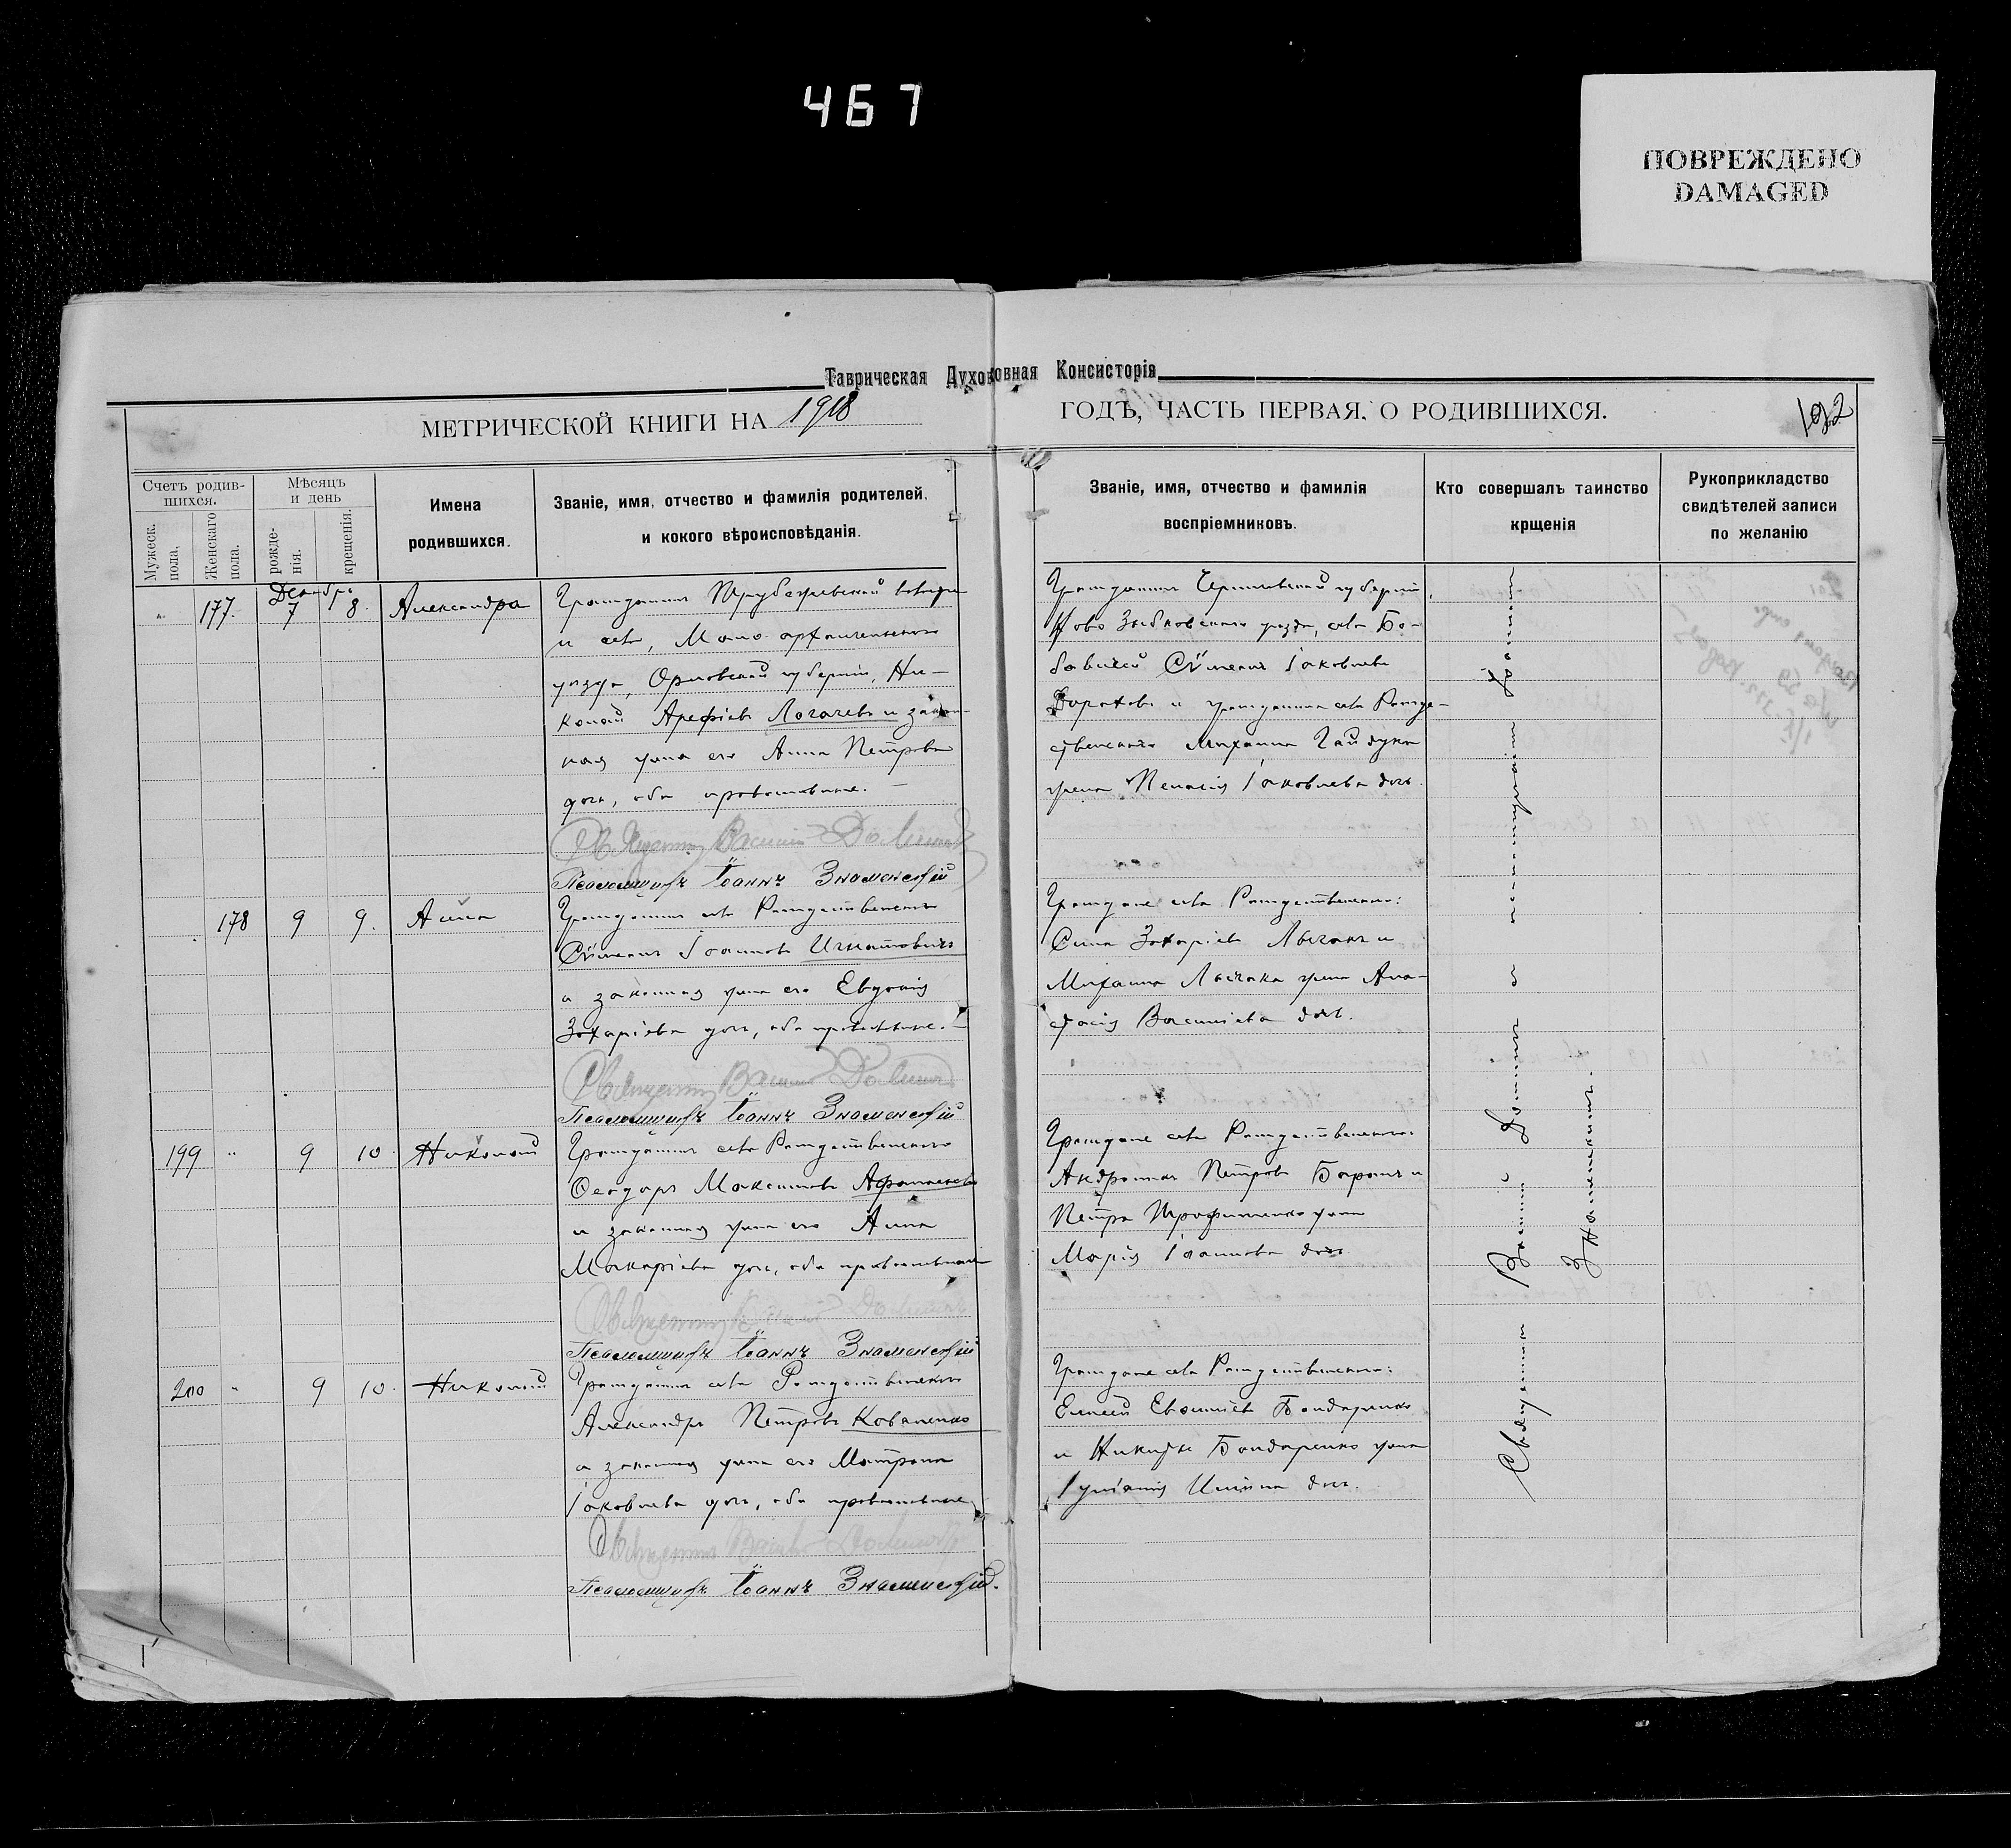 467
ПОВРЕЖДЕНО
DAMAGED
Таврическая Духовная Консисторія
МЕТРИЧЕСКОЙ КНИГИ НА 1918
ГОДЪ, ЧАСТЬ ПЕРВАЯ, О РОДИВШИХСЯ.
192
Счетъ родив-
шихся.
Мужеск.
пола.
Женскаго
пола.
Мѣсяцъ
и день
рожде-
нія.
крещенія.
Имена
родившихся.
Званіе, имя, отчество и фамилія родителей,
и кокого вѣроисповѣданія.
Званіе, имя, отчество и фамилія
воспріемниковъ.
Кто совершалъ таинство
крщенія
Рукоприкладство
свидѣтелей записи
по желанію
Декабрь
177 7 8 Александра
Гражданинъ Трубачевской волости
и села, Мало-архангельскаго
уѣзда, Орловской губерніи, Ни-
колай Арефіевъ Логачевъ и закон-
ная жена его Анна Петрова
дочь, оба православные.
Священникъ Василій Долининъ
Псаломщикъ Іоаннъ Знаменскій
Гражданинъ Черниговской губерніи,
Ново Зыбковскаго уѣзда, села
Сѵмеонъ Іаковлевъ
и гражданина села Рожде-
ственскаго Михаила Гайдука
жена Пелагія Іаковлева дочь.
178 9 9. Анна
Гражданинъ села Рождественскаго
Сѵмеонъ Іоанновъ Игнатовичъ
и законная жена его Евдокія
Захаріева дочь, оба православные.
Священникъ Василій Долининъ
Псаломщикъ Іоаннъ Знаменскій
Граждане села Рождественскаго:
Сила Захаріевъ Лысакъ и
Михаила Лысака жена Ана-
стасія Василіева дочь.
199 " 9 10 Николай
Гражданинъ села Рождественскаго
Ѳеодоръ Максимовъ
и законная жена его Анна
Макаріева дочь, оба православные
Священникъ Василій Долининъ
Псаломщикъ Іоаннъ Знаменскій
Граждане села Рождественскаго:
Андроникъ Петровъ Баранъ и
Петра Трофименко жена
Марія Іоаннова дочь
200 " 9 10. Николай
Гражданинъ села Рождественскаго
Александръ Петровъ Коваленко
и законная жена его Матрона
Іаковлева дочь, оба православные
Священникъ Василій Долининъ
Псаломщикъ Іоаннъ Знаменскій.
Граждане села Рождественскаго:
Елисей Бондаренко
и Никиты Бондаренко жена
Іуліанія Иліина дочь.
Священникъ Василій Долининъ с псаломщикомъ Іоанномъ
Знаменскимъ.